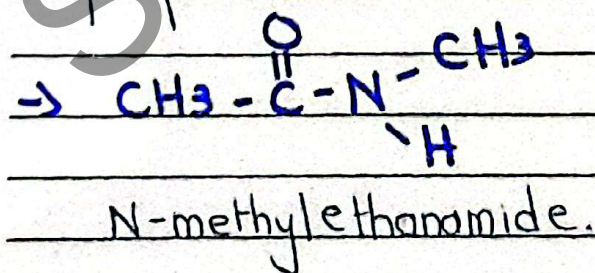 O
→ CH3 - C - N - CH3
H
N-methylethanamide.